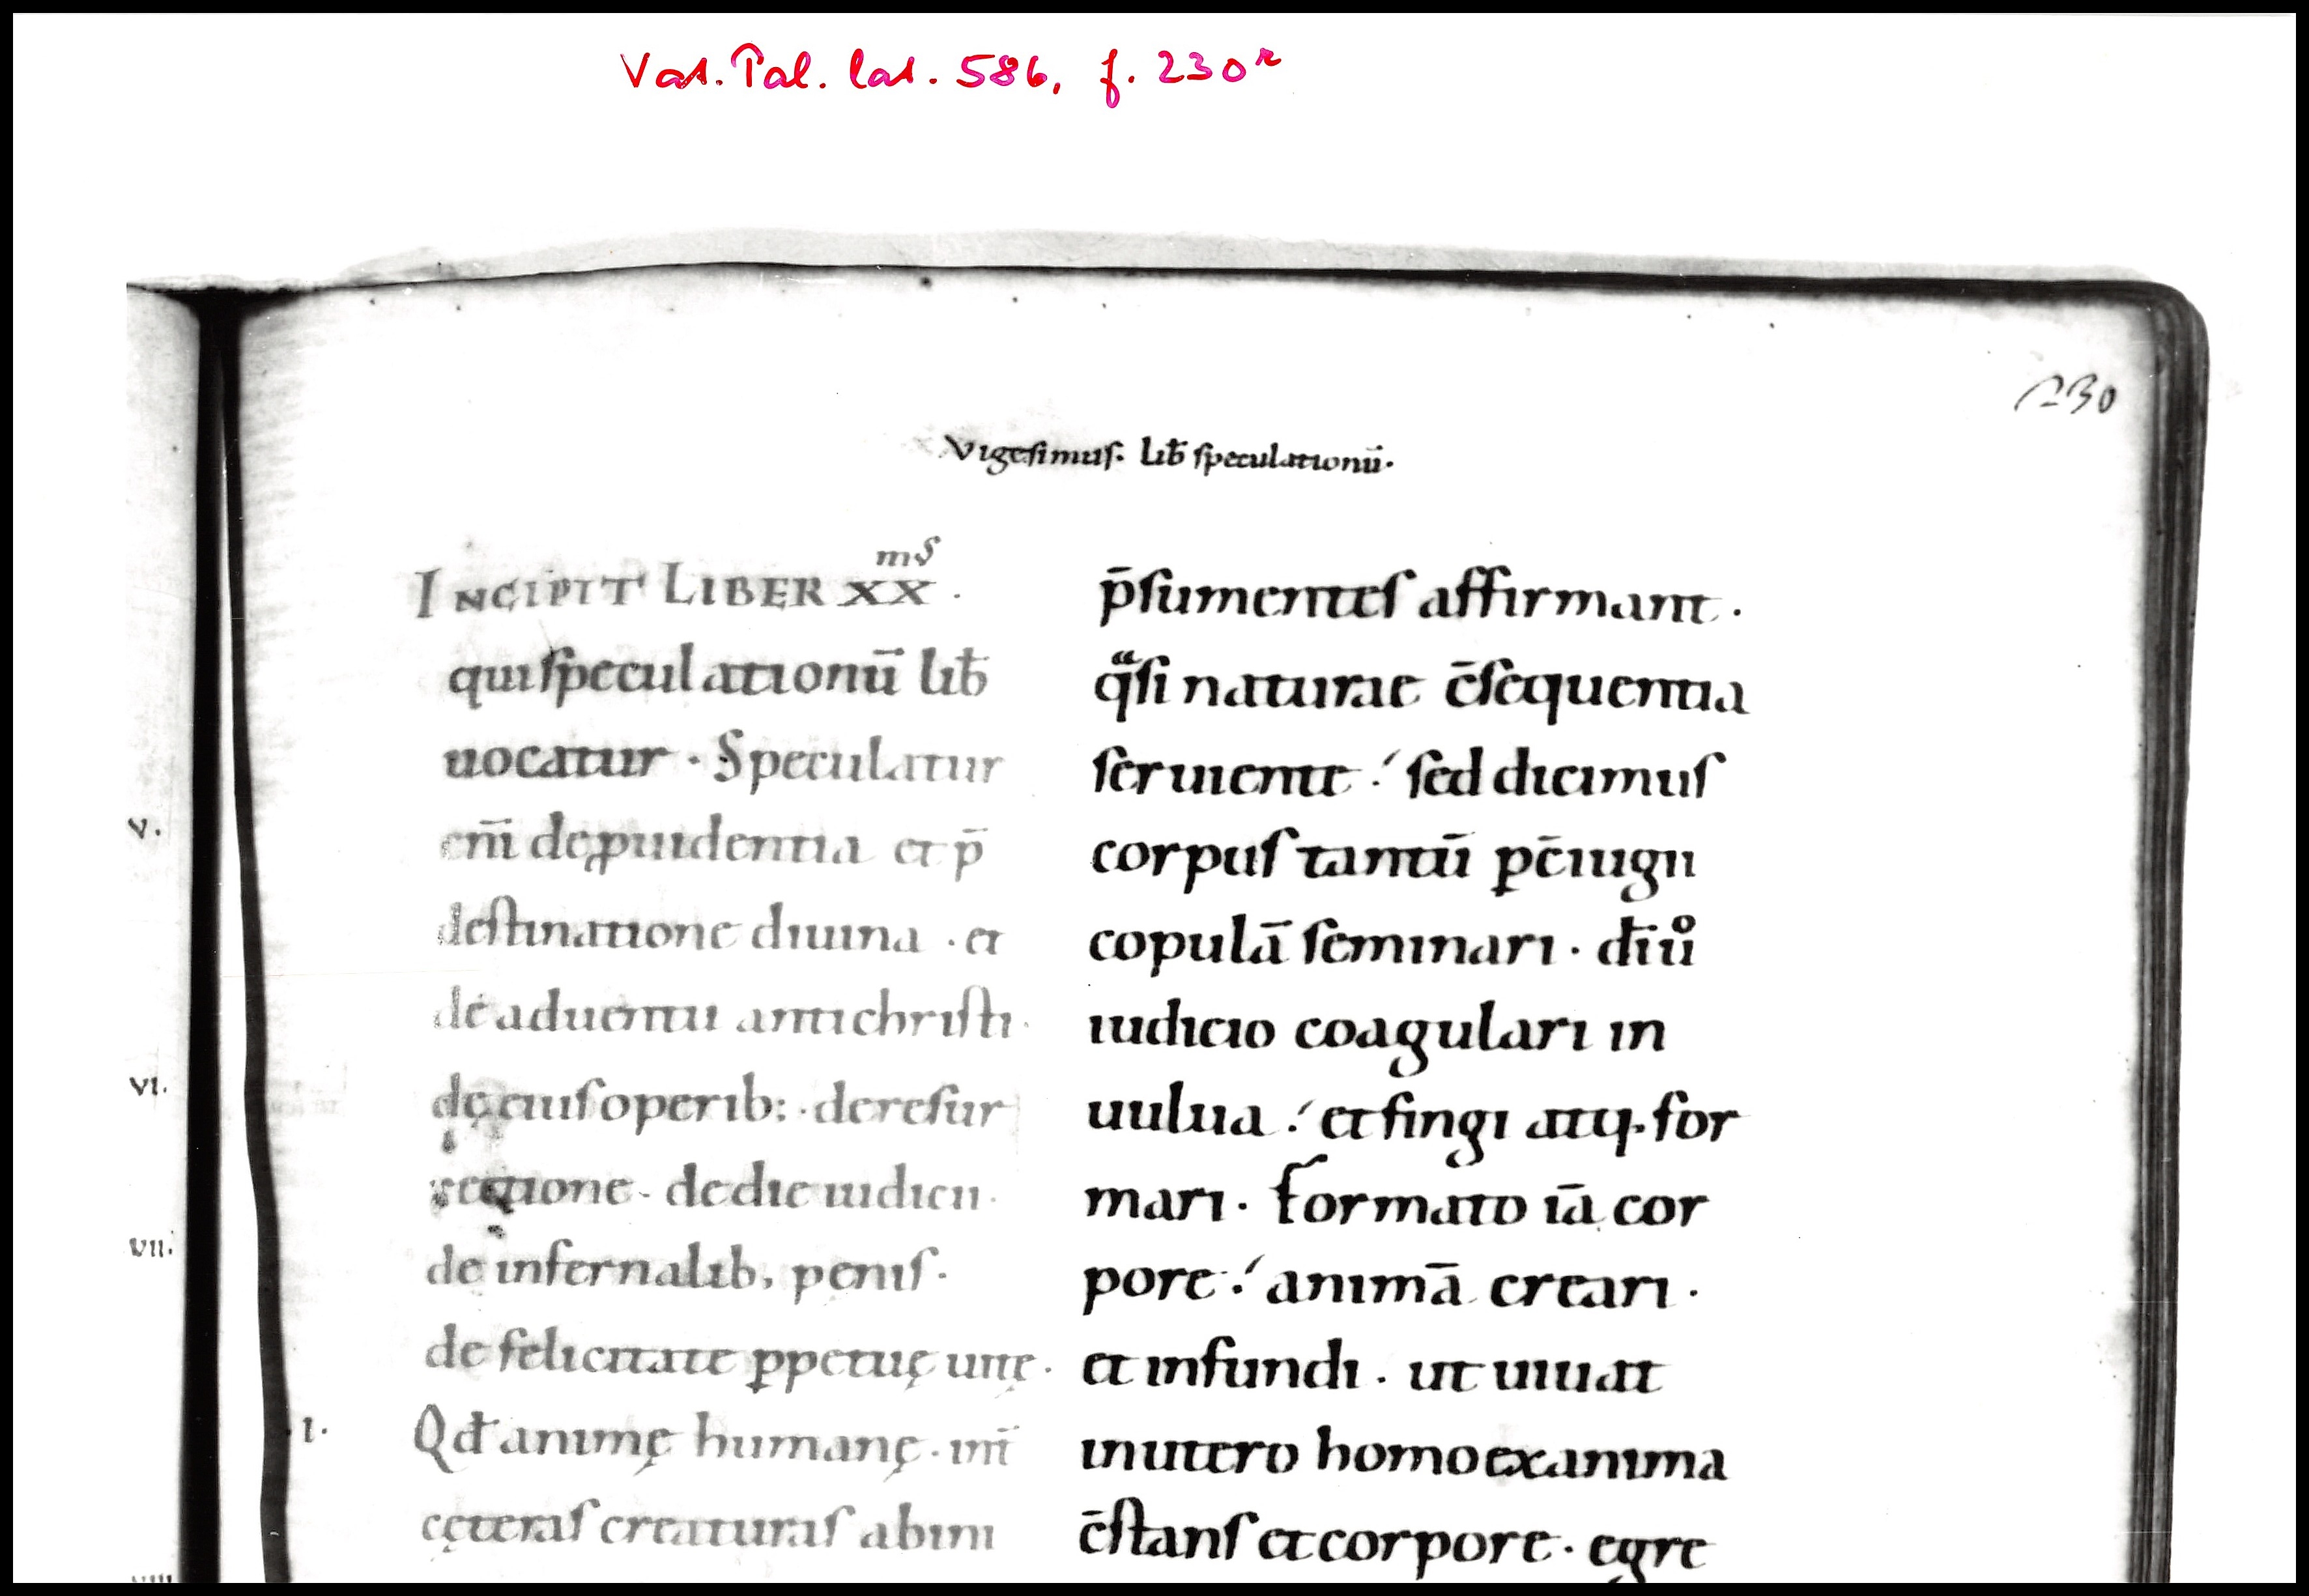 Vat. Pal. lat. 586, f. 230r
230
Vigesimus. lib̄ speculationū.
INCIPIT LIBER XXmS.
qui speculationū lib̄
uocatur. Speculatur
eni̅ de ꝓuidentia et p̄
destinatione diuina. et
de aduentu antichristi.
de eius operib:. de resur
rectione. de die iudicii.
de infernalib, penis.
de felicitate ꝑpetuę uitę.
I.
Qđ animę humanę. int̄
cęteras creaturas ab ini
p̄sumentes affirmant.
qᵃsi naturae c̄sequentia
seruiente: sed dicimus
corpus tantū ꝑ c̄iugii
copulā seminari. dī ůͦ
iudicio coagulari in
uulua: et fingi atq. for
mari. Formato iā cor
pore: animā creari.
et infundi. ut uiuat
in utero homo ex anima
c̄stans et corpore. egre
V.
VI.
VII.